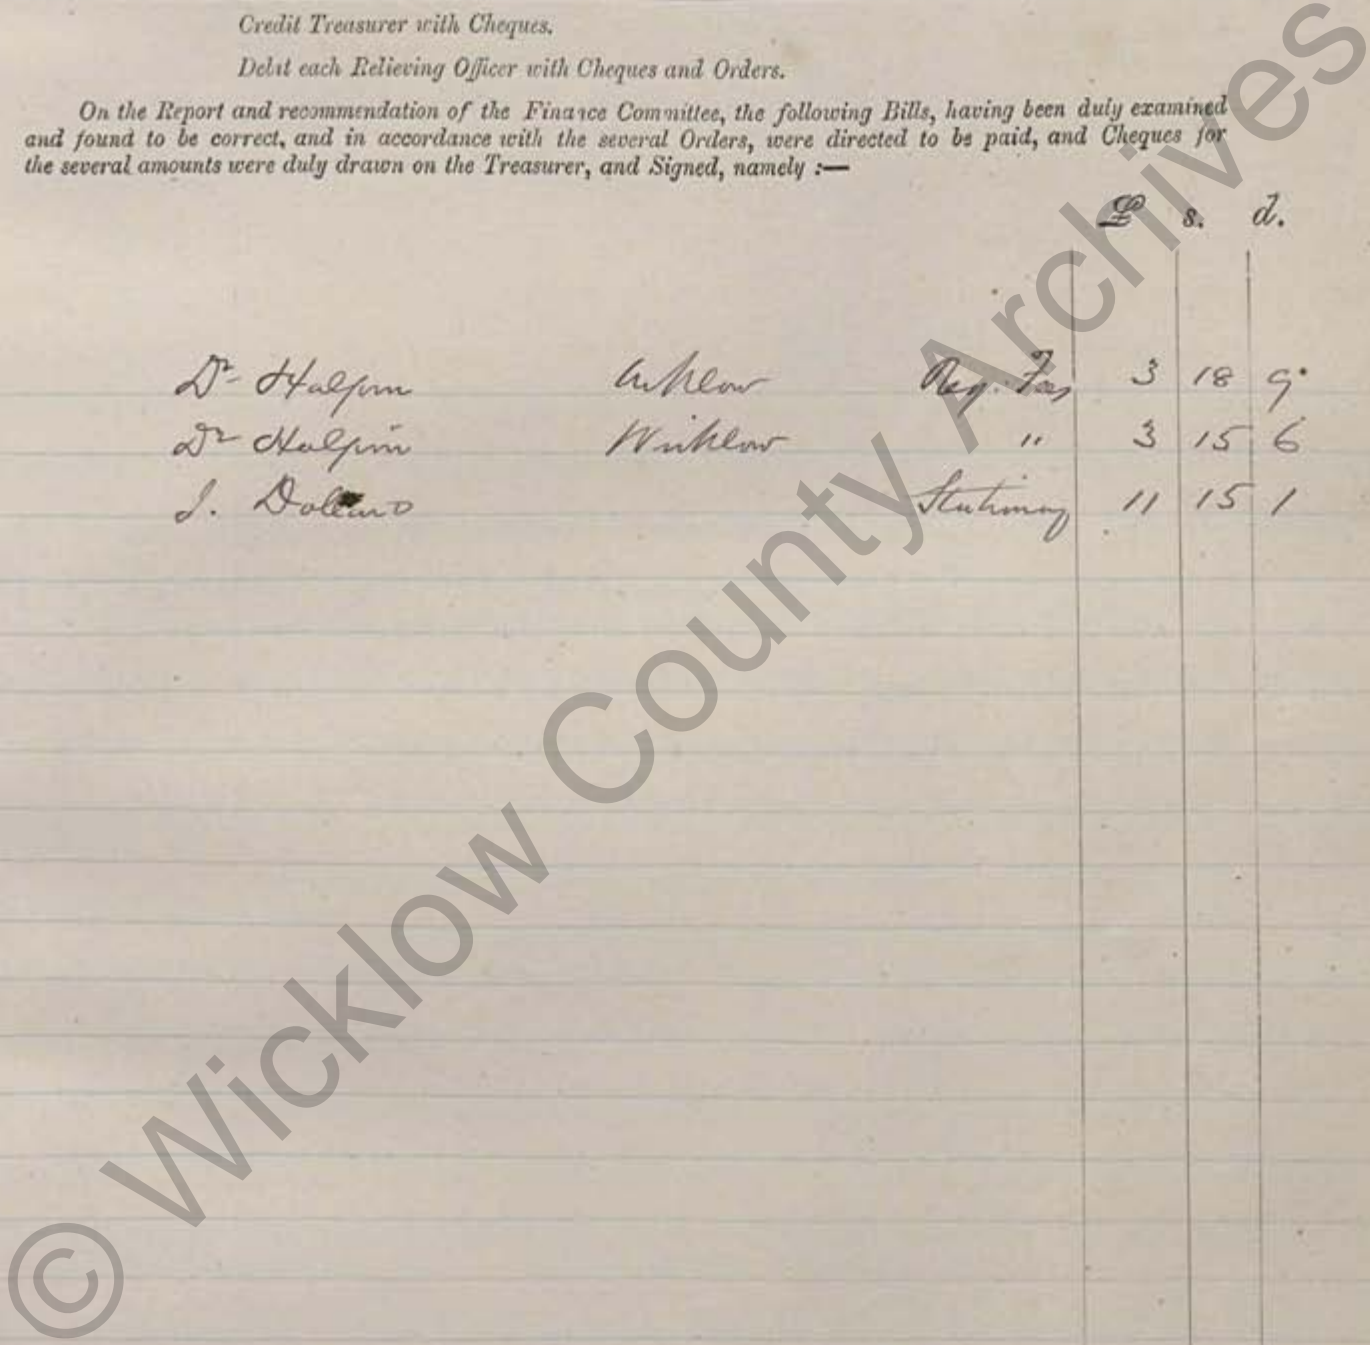 Credit Treasurer with Cheques.
Debit each Relieving Officer with Cheques and Orders.
On the Report and recommendation of the Finance Committee, the following Bills, having been duly examined
and found to be correct, and in accordance with the several Orders, were directed to be paid, and Cheques for
the several amounts were duly drawn on the Treasurer, and Signed, namely :—
£ s. d.
Dr Halpin Arklow Reg. Fees 3 18 9
Dr Halpin Wicklow " 3 15 6
J. Dollard Stationery 11 15 1
© Wicklow County Archives